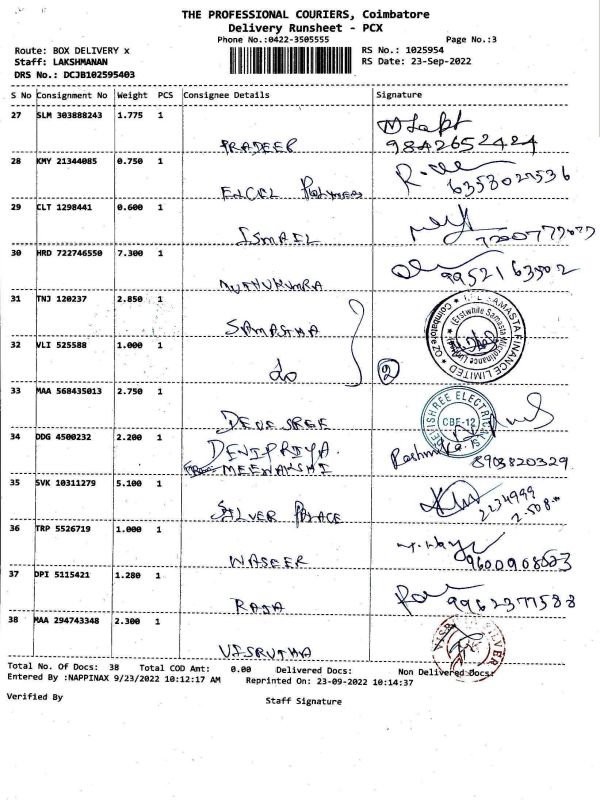 THE PROFESSIONAL COURIERS, Coimbatore
Delivery Runsheet - PCX
Phone No.:0422-3505555
Page No.:3
Route: BOX DELIVERY x
RS No.: 1025954
Staff: LAKSHMANAN
RS Date: 23-Sep-2022
DRS No.: DCJB102595403
S No Consignment No Weight PCS Consignee Details Signature
27 SLM 303888243 1.775 1
PRADEEP 9842652424
28 KMY 21344085 0.750 1
EXCEL Polymers 6358027536
29 CLT 1298441 0.600 1
ISMAIL
30 HRD 722746550 7.300 1
MUTHUKUMRA 9952163502
31 TNJ 120237 2.850 1
SAMASTHA
SAMASTA FINANCE LIMITED
(Erstwhile Samasta Microfinance Limited)
Coimbatore
32 VLI 525588 1.000 1
do 2
33 MAA 568435013 2.750 1
DEVI SREE
DEVISHREE ELECTRICALS
CBE-12
34 DDG 4500232 2.200 1
DEVIPRIYA.
MEENAKSHI 8903820329
35 SVK 10311279 5.100 1
SILVER PALACE 2234999
2.508
36 TRP 5526719 1.000 1
NASEER
37 DPI 5115421 1.280 1
RAJA 9962377588
38 MAA 294743348 2.300 1
VISRUTHA
SILVER
Total No. Of Docs: 38 Total COD Amt: 0.00 Delivered Docs: Non Delivered Docs:
Entered By :NAPPINAX 9/23/2022 10:12:17 AM Reprinted On: 23-09-2022 10:14:37
Verified By
Staff Signature